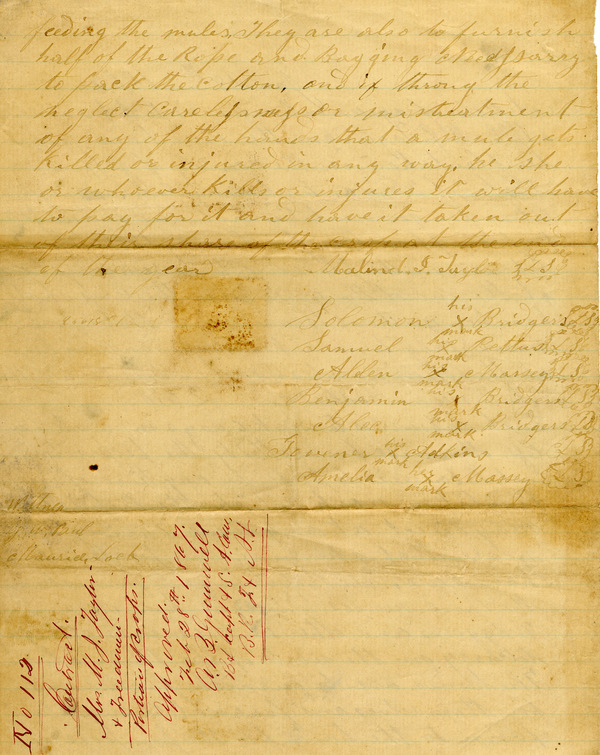 feeding the mules They are also to furnish
half of the Rope and Bagging nessarry
to pack the cotton, and if throug the
neglect carelessness or mistreatment
of any of the hands that a mule gets
killed or injured in any way, he she
or whoever kills or injures it will have
to pay for it and have it taken out
of their share of the crop at the end
of the year
Malinda J. Taylor L S
his
Solomon x Bridgers L S
mark
his
Samuel x Pettus L S
mark
his
Alden x Massey L S
mark
his
Benjamin x Bridgers L S
mark
Alex x Bridgers L S
mark
his
Towner x Adkins L S
mark
her
Amelia x Massey L S
mark
Witness
Maurice Lock
No 112
Contract.
Mrs M. J. Taylor
& Freedmen.
Portion of crops.
Approved.
Feb 28th 1867.
1st Lieut 45